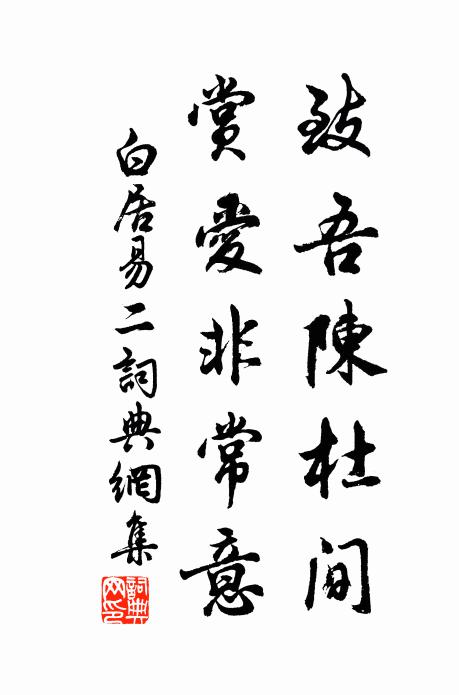 致吾陳杜間
賞愛非常意
白居易二詞典網集
詞典網印